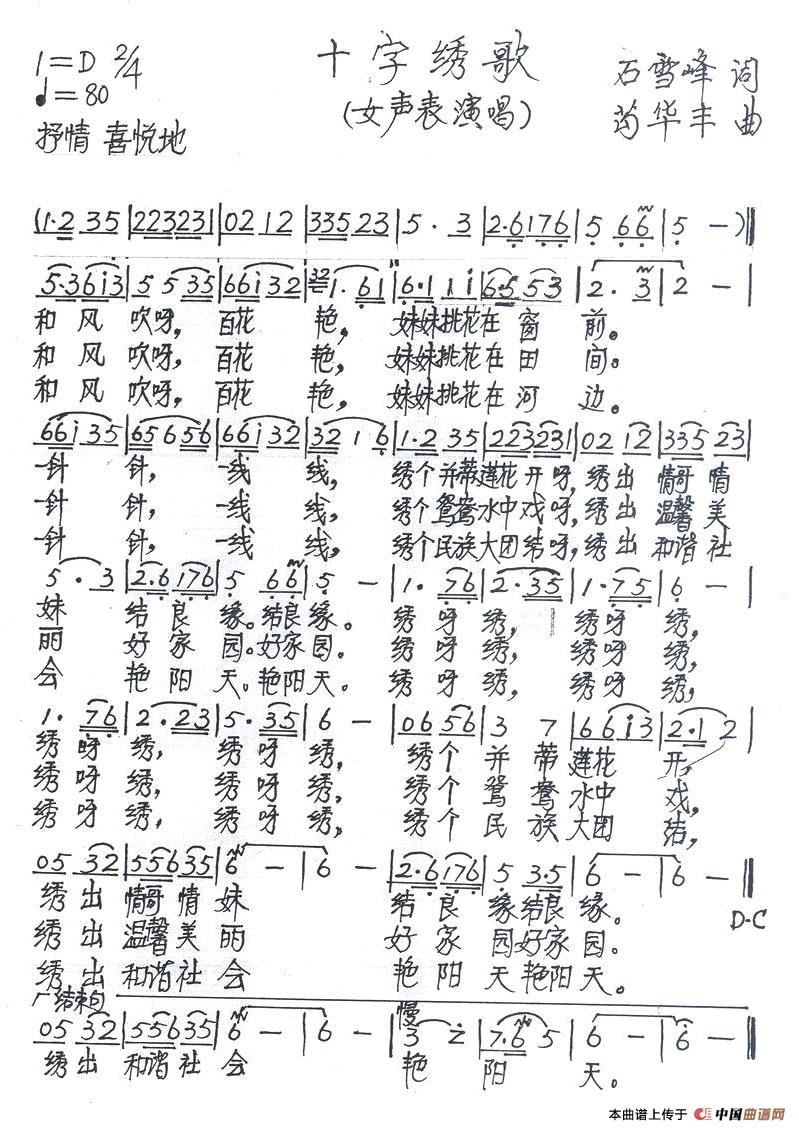 1=D 2/4
♩=80
抒情 喜悦地
十字绣歌
(女声表演唱)
石雪峰 词
苟华丰 曲
(1·2 35|22323|02 12|335 23|5· 3|2·6 176|5 66|5 —)‖
5·3 6i3|5 5 35|66i 32|32 1· 61|6·1 1i|6·5 53|2· 3|2 —|
和风吹呀,百花 艳, 妹妹挑花在窗 前。
和风吹呀,百花 艳, 妹妹挑花在田 间。
和风吹呀,百花 艳, 妹妹挑花在河 边。
66i 35|65 6 56|66i 32|32 1 6|1·2 35|223 231|02 12|335 23|
一针 针, 一线 线, 绣个并蒂莲花开呀,绣出 情哥 情
一针 针, 一线 线, 绣个鸳鸯水中戏呀,绣出 温馨 美
一针 针, 一线 线, 绣个民族大团结呀,绣出 和谐 社
5· 3|2·6 176|5 66|5 —|1· 76|2· 35|1· 75|6 —|
妹 结良缘。结良缘。 绣呀绣, 绣呀绣,
丽 好家园。好家园。 绣呀绣, 绣呀绣,
会 艳阳天。艳阳天。 绣呀绣, 绣呀绣,
1· 76|2· 23|5· 35|6 —|06 56|3 7|66 i3|2·1 2|
绣呀绣, 绣呀绣, 绣个并蒂莲花 开,
绣呀绣, 绣呀绣, 绣个鸳鸯水中 戏,
绣呀绣, 绣呀绣, 绣个民族大团 结,
05 32|556 35|6 —|6 —|2·6 176|5 3·5|6 —|6 —‖
绣出 情哥情妹 结良缘结良缘。
D·C
绣出 温馨美丽 好家园好家园。
绣出 和谐社会 艳阳天艳阳天。
结束句
05 32|556 35|6 —|6 —|慢 3 2|7·6 5|6 —|6 —‖
绣出 和谐社会 艳 阳 天。
本曲谱上传于 中国曲谱网